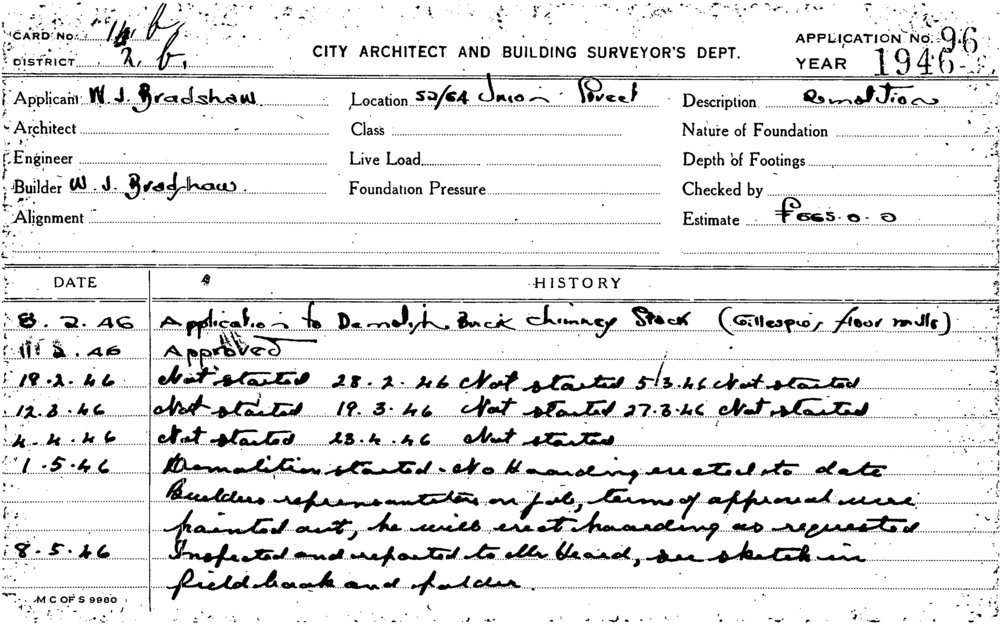 CARD No. 14 b
DISTRICT 2. b.
CITY ARCHITECT AND BUILDING SURVEYOR'S DEPT.
APPLICATION No. 96
YEAR 1946
Applicant W. J. Bradshaw Location 52/64 Union Street Description Demolition
Architect Class Nature of Foundation
Engineer Live Load Depth of Footings
Builder W. J. Bradshaw. Foundation Pressure Checked by
Alignment Estimate £665.0.0
DATE HISTORY
8. 2. 46 Application to Demolish Brick Chimney Stack (Gillespies flour mills)
11. 2. 46 Approved
19. 2. 46 Not started 28. 2. 46 Not started 5/3.46 Not started
12. 3. 46 Not started 19. 3. 46 Not started 27.3.46 Not started
4. 4. 46 Not started 23. 4. 46 Not started
1. 5. 46 Demolition started. No Hoarding erected to date
Builders representative on job, terms of approval were
pointed out, he will erect hoarding as requested
8. 5. 46 Inspected and reported to Mr Heard, see sketch in
field book and folder
M C OF S 9980